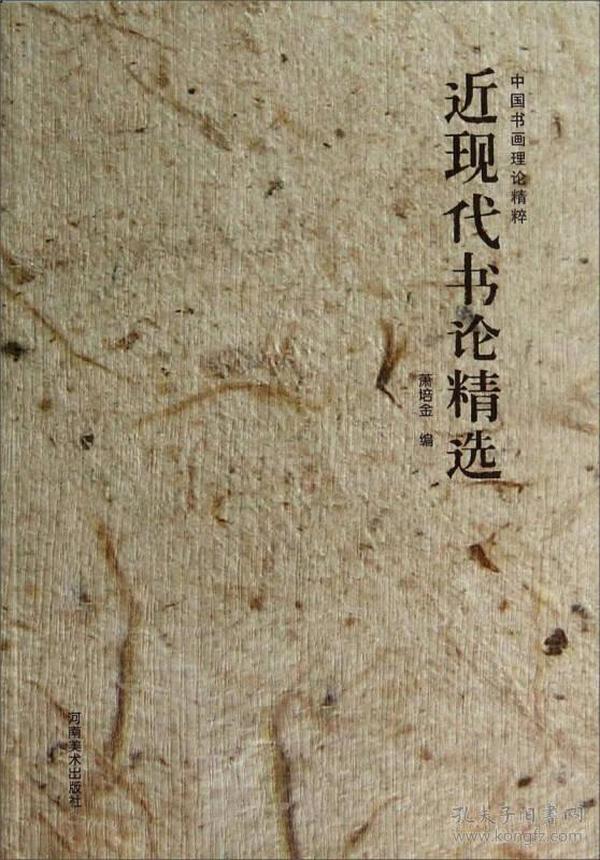 中国书画理论精粹
近现代书论精选
萧培金 编
河南美术出版社
孔夫子旧書网
www.kongfz.com